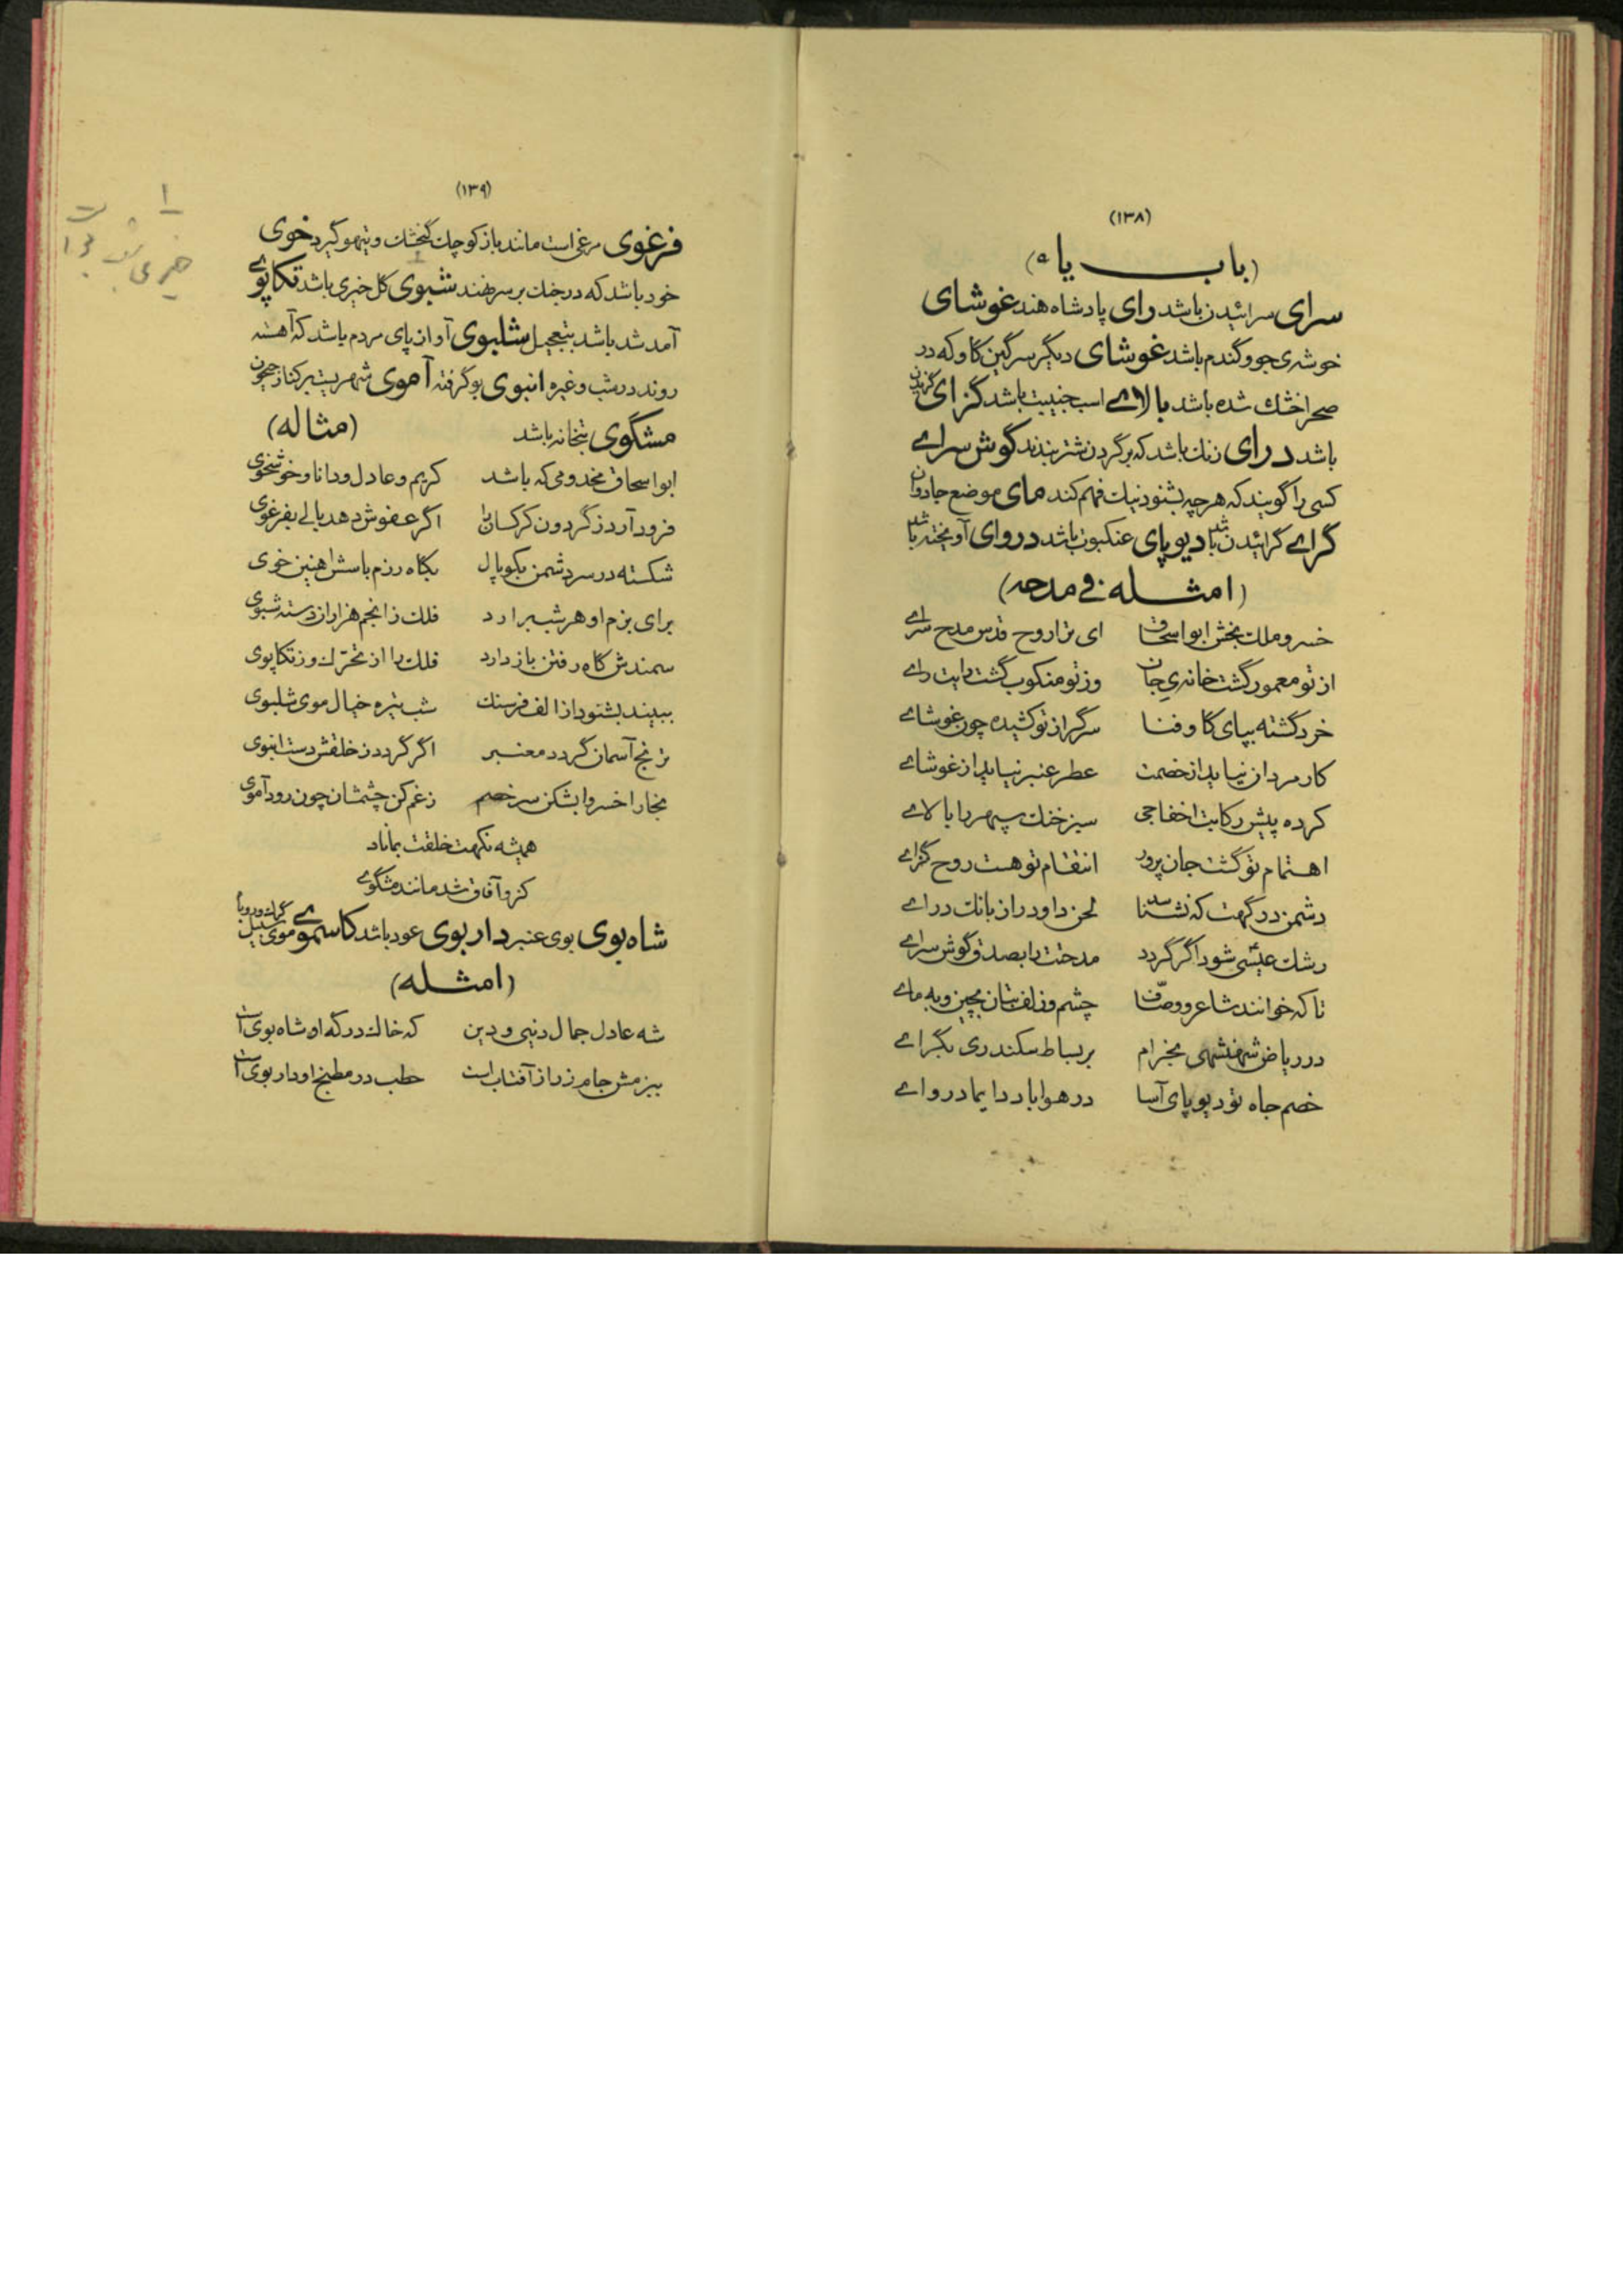 (۱۳۸)
(باب یاء)
سرای سرائیدن باشد رای پادشاه هند غوشای
خوشه‌ی جو و گندم باشد غوشای دیگر سرگین گاو که در
صحرا خشك شده باشد بالاے اسب جنیبت باشد گزای گزیدن
باشد درای زنك باشد که بر گردن شتر بندند گوش سراے
کسی را گویند که هر چه بشنود نیك فهم کند مای موضع جادوان
گراے گرائیدن باشد دیوپای عنکبوت باشد دروای آویخته باشد
(امثله فی مدحه)
خسرو ملك بخش ابو اسحاق ای ترا روح قدس مدح سراے
از تو معمور گشت خانه‌ی جان وز تو منکوب گشت رایت راے
خرد گشته بپای گاو فنا سرگر از تو کشیده چون غوشاے
کار مردان نیاید از خصمت عطر عنبر نیاید از غوشاے
کرده پیش رکابت اخفاجی سبز خنك سپهر را بالاے
اهتمام تو گشت جان پرور انتقام تو هست روح گزاے
دشمن در گهت که نشناسد لحن داود را ز بانك دراے
رشك عیسی شود اگر گردد مدحتت را بصدق گوش سراے
تا که خوانند شاعر و وصّاف چشم و زلف بتان بچین و به ماے
در ریاض شهنشهی بخرام بر بساط سکندری بگراے
خصم جاه تو دیوپای آسا در هوا باد دایما درواے
(۱۳۹)
فرغوی مرغی است مانند باز کوچك گنجشك و تیهو گیرد خوی
خود باشد که در جنك بر سر نهند شبوی گل خیری باشد تکاپوے
آمد شد باشد بتعجیل شلپوی آواز پای مردم باشد که آهسته
روند در شب و غیره انبوی بو گرفته آموی شهریست بر کنار جیحون
مشگوی بتخانه باشد (مثاله)
ابو اسحاق مخدومی که باشد کریم و عادل و دانا و خوشخوی
فرود آرد ز گردون کرکسان را اگر عفوش دهد بالے بفرغوی
شکسته در سر دشمن بکوپال بگاه رزم باسش اهنین خوی
برای بزم او هر شب برارد فلك ز انجم هزاران دسته شبوی
سمندش گاه رفتن باز دارد فلك را از تحرّك وز تکاپوی
ببیند بشنود از الف فرسنك شب تیره خیال موی شلپوی
ترنج آسمان گردد معنبر اگر گردد ز خلقش دست انبوی
بخارا خسروا بشکن سر خصم ز غم کن چشمشان چون رود آموی
همیشه نکهت خلقت بماناد
کزو آفاق شد مانند مشگوے
شاه بوی بوی عنبر داربوی عود باشد کاسموے موی سبیل گرك و روباه
(امثله)
شه عادل جمال دنیی و دین که خاك درگه او شاه بوی است
ببزمش جام زر از آفتاب است حطب در مطبخ او دار بوی است